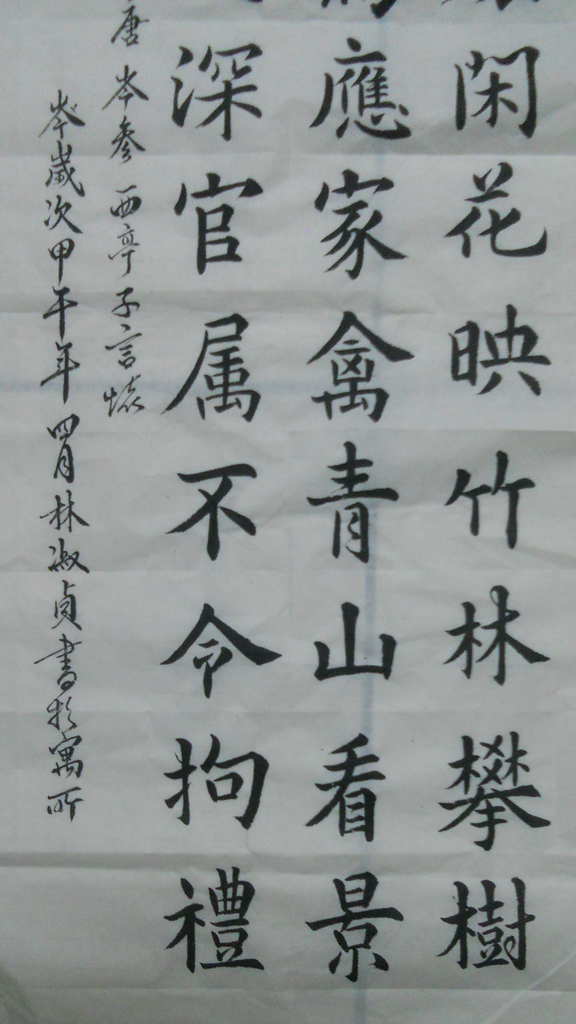 閑花映竹林攀樹
應家禽青山看景
深官属不令拘禮
唐岑參西亭子言懷
岑歲次甲午年四月林淑貞書於寓所